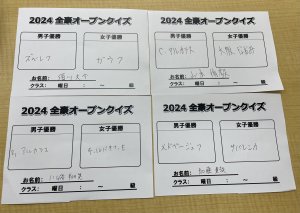 2024 全豪オープンクイズ
男子優勝 女子優勝
ズベレフ ガウフ
お名前:
クラス: 曜日 : ～ 級
2024 全豪オープンクイズ
男子優勝 女子優勝
C. アルカラス 大坂
お名前:
クラス: 曜日 : ～ 級
2024 全豪オープンクイズ
男子優勝 女子優勝
アルカラス
お名前:
クラス: 曜日 : ～ 級
2024 全豪オープンクイズ
男子優勝 女子優勝
メドベージェフ サバレンカ
お名前: 加藤
クラス: 曜日 : ～ 級